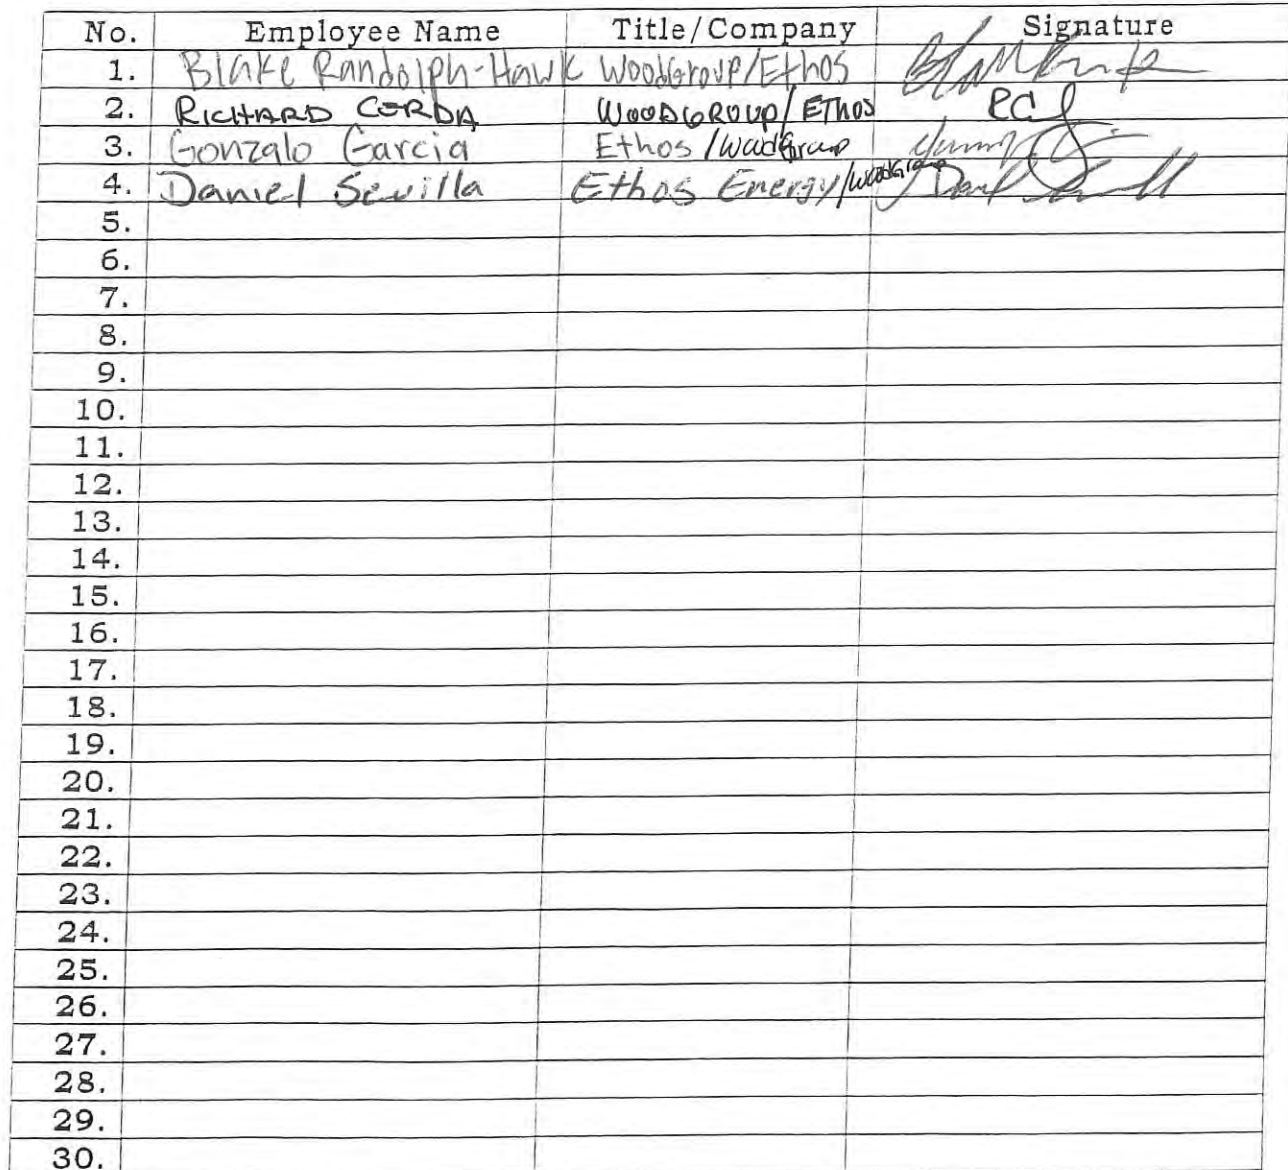 No. Employee Name Title/Company Signature
1. Blake Randolph-Hawk WoodGroup/Ethos
2. RICHARD CERDA WOODGROUP/ETHOS
3. Gonzalo Garcia Ethos/WoodGroup
4. Daniel Sevilla Ethos Energy/WoodGroup
5.
6.
7.
8.
9.
10.
11.
12.
13.
14.
15.
16.
17.
18.
19.
20.
21.
22.
23.
24.
25.
26.
27.
28.
29.
30.